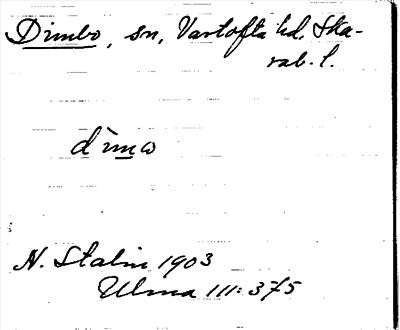 Dimbo, sn, Vartofta hd. Ska-
rab. l.
dìmω
N. Stalin 1903
Ulma 111:375